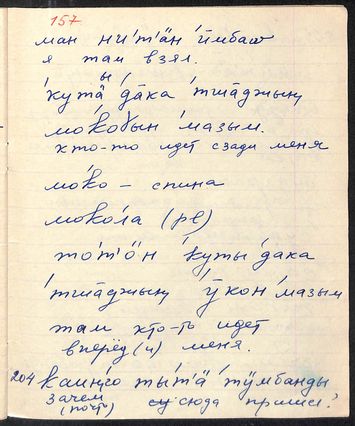 157
ман ни́т'ӓ́н и́мбаԝ
я там взял.
ы
'кут'ӓ́ 'да̄ка 'тша̄джың
мо'коɣын 'мазым.
кто-то идет сзади меня
мо'ко – спина
моко́ла (pl)
то́т'ӧ́н 'куты 'дака
'тша̄джың 'ӯкон 'мазым
там кто-то идет
вперёд(и) меня.
204 каиңго ты́т'ӓ́ 'тӱмбанды
зачем сюда пришел?
(почто)